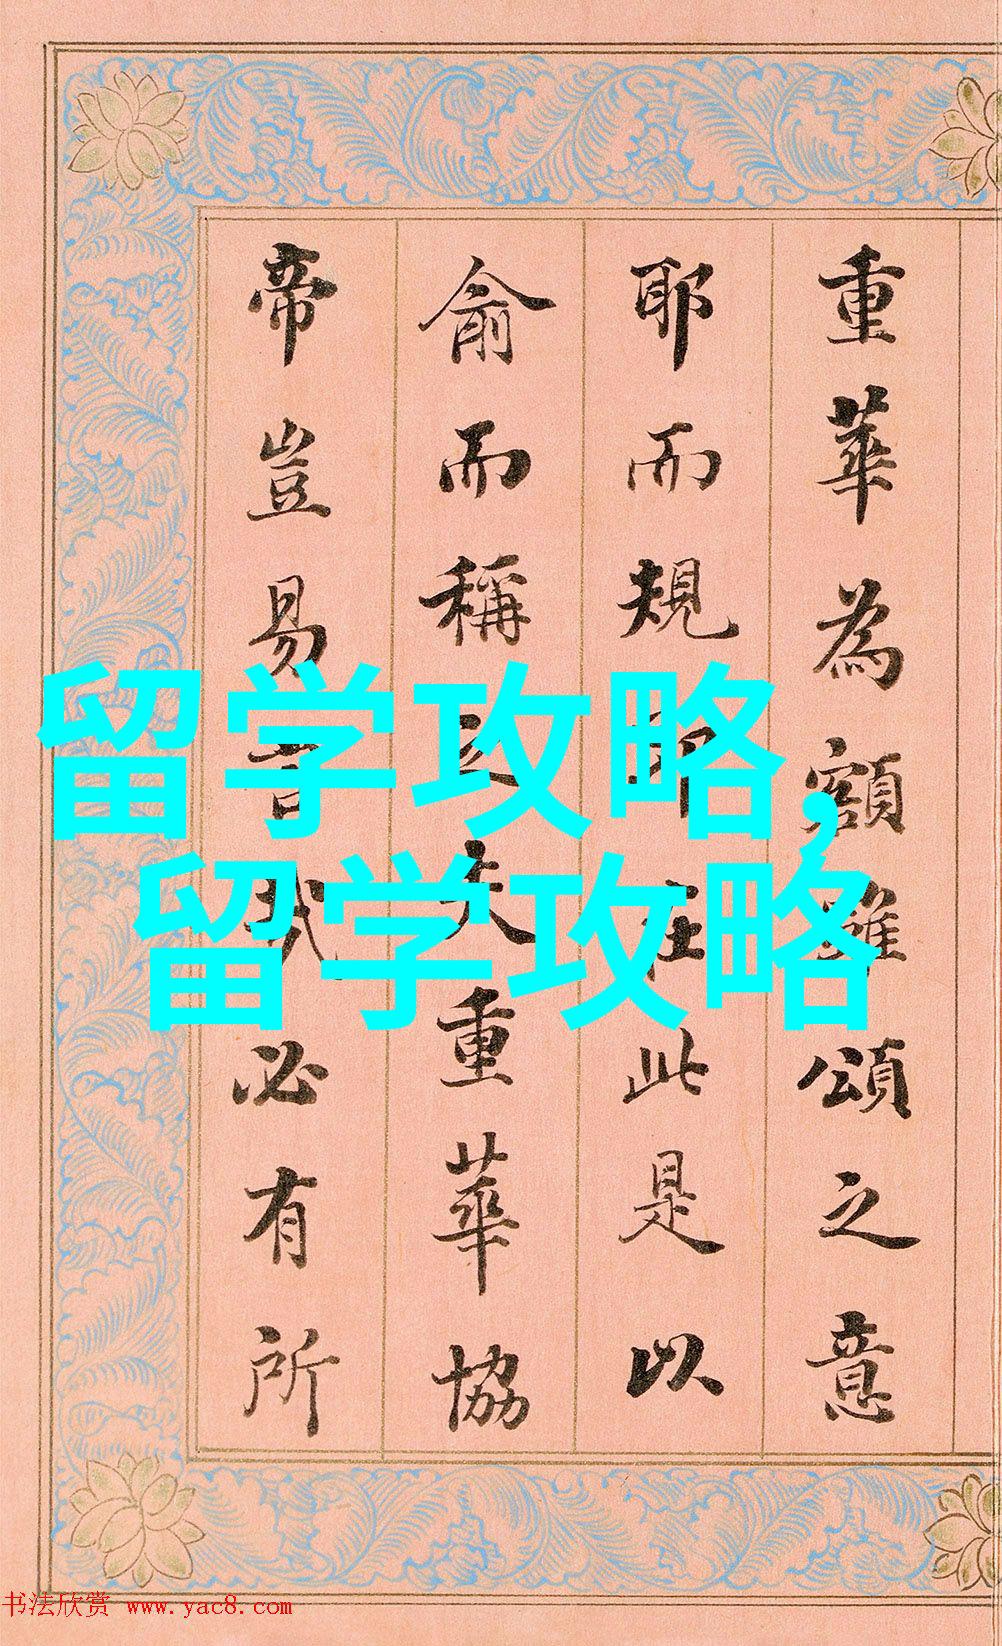 重華為額雖頌之意
耶而規在此是以
俞而稱夫重華協
帝豈易言哉必有所
留学攻略,
留学攻略
书法欣赏 www.yac8.com